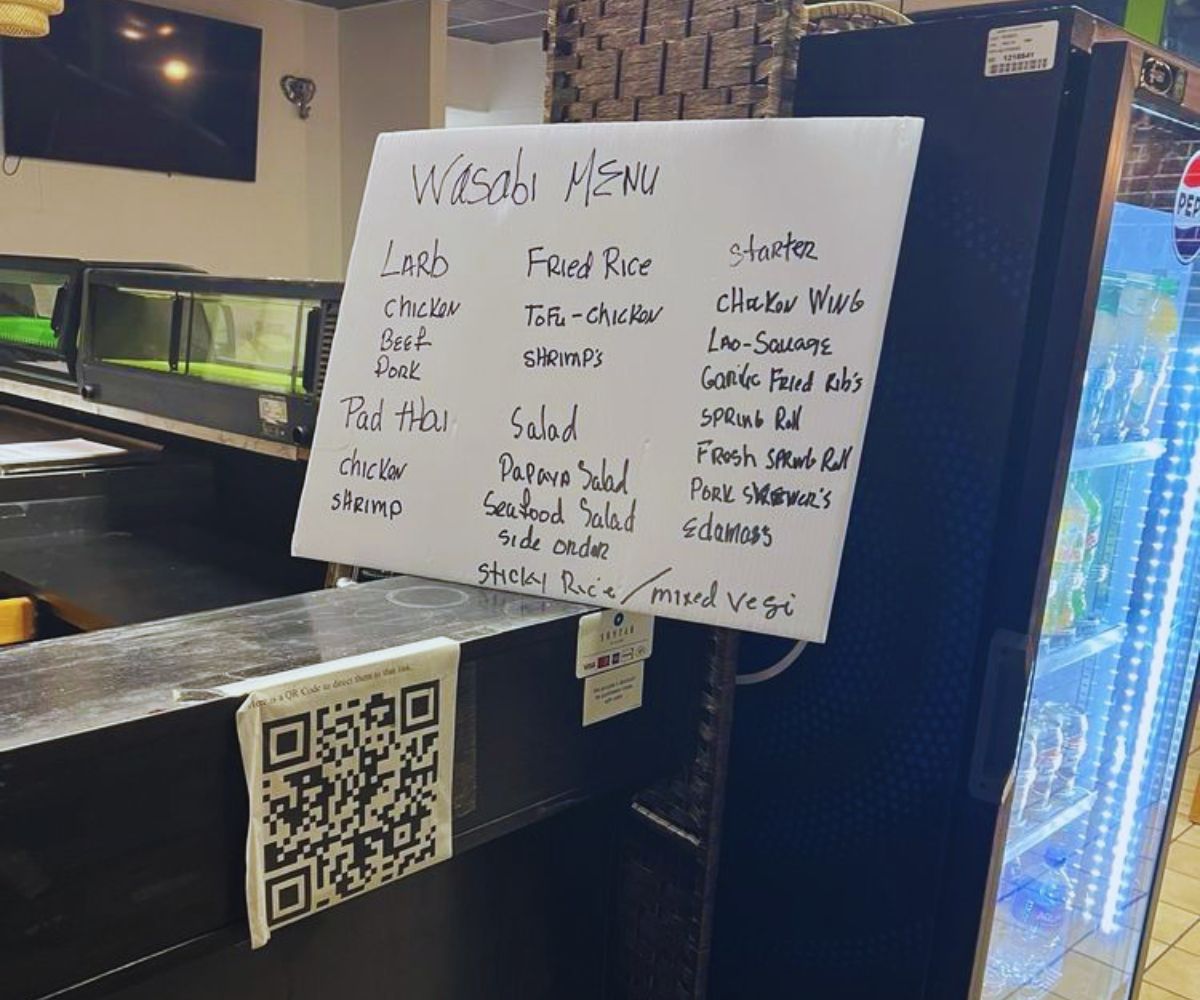 Wasabi MENU
LARb
CHICKEN
BEEF
PORK
Pad tHai
CHICKEN
SHRIMP
FRIED RICE
TOFU-CHICKEN
SHRIMP'S
Salad
PaPaya Salad
Seafood Salad
side order
Sticky Rice/mixed Vegi
Starter
CHICKEN WING
LAO-Sausage
Garlic Fried Rib's
SPRING Roll
Fresh SPRING Roll
PORK SKEWER'S
Edamass
Here is a QR Code to direct them to this link.
VISA
1218841
PEP